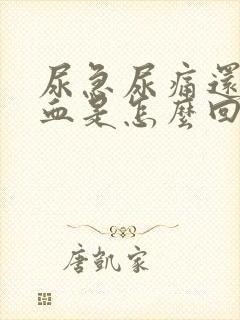 尿急尿痛還
血是怎麼回
唐凱家